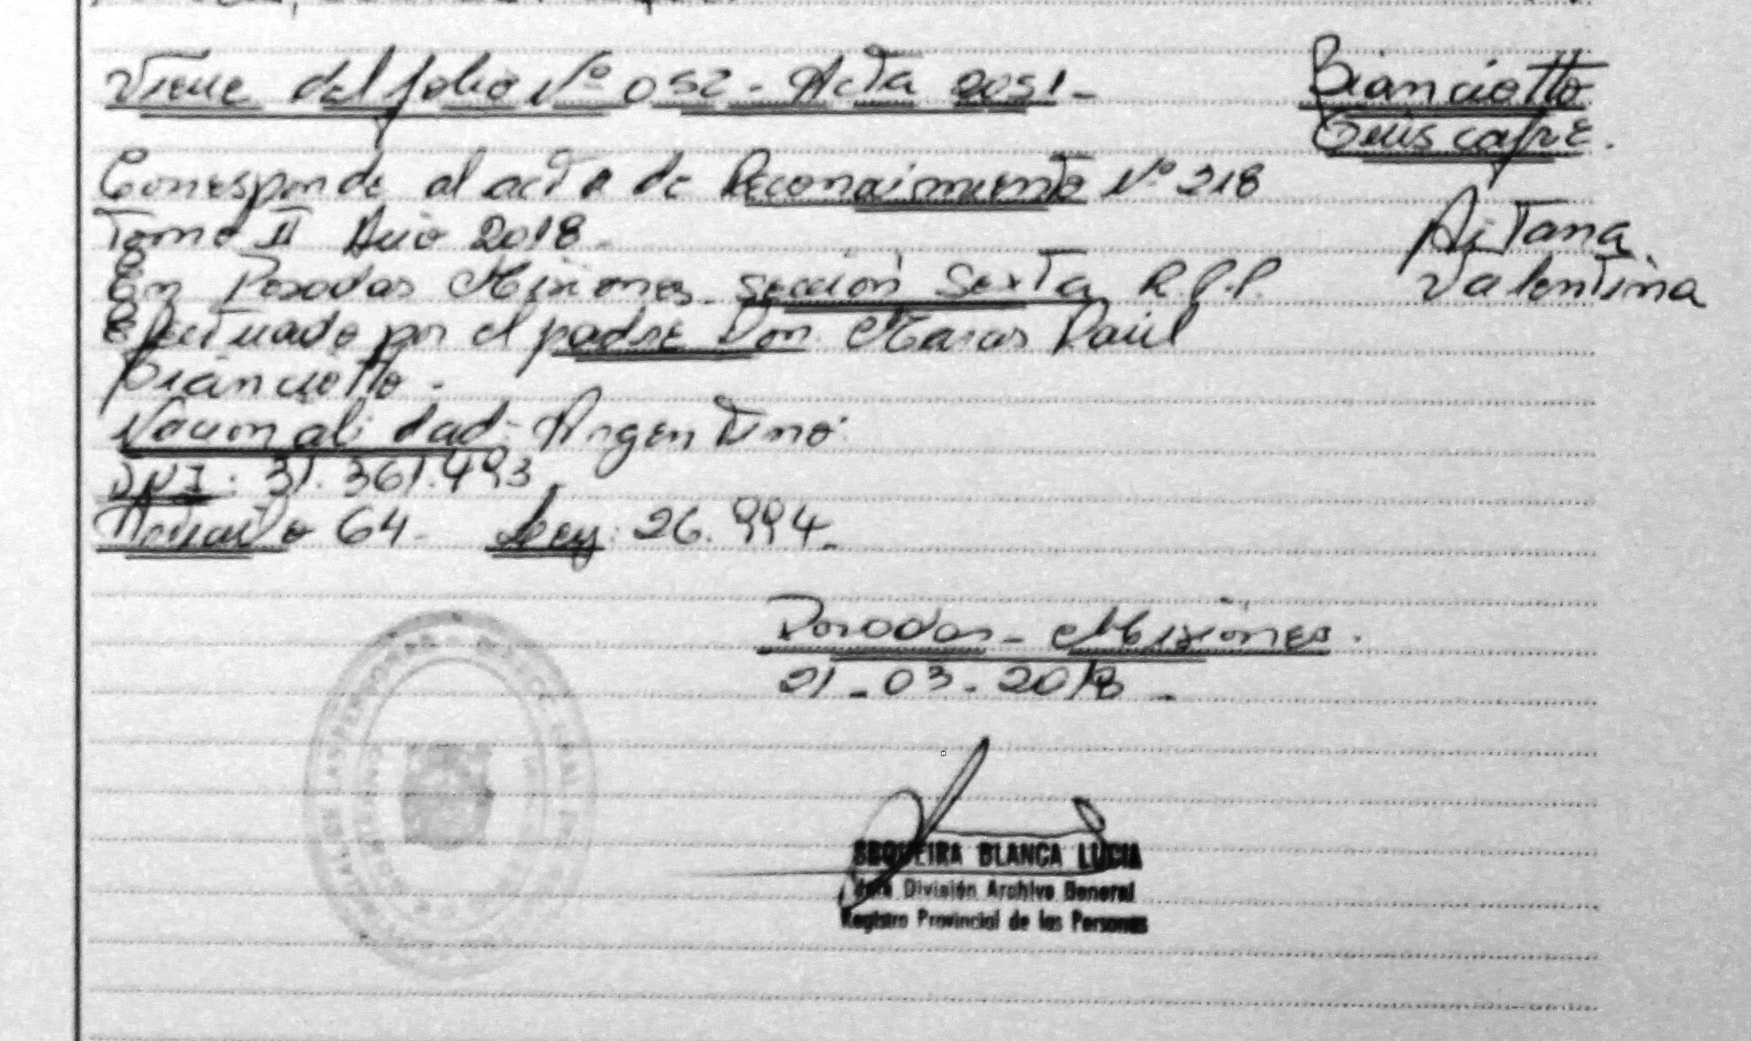 Viene del folio Nº 052 - Acta 2051 -
Corresponde al acta de Reconocimiento Nº 218
Tomo II Año 2018.
En Posadas Misiones sección Sexta R.P.P.
Efectuado por el padre Don. Marcos Raúl
Bianciotto.
Nacionalidad: Argentino.
DNI: 31.361.493
Artículo 64. Ley: 26.994.
Bianciotto
Valentina
Aitana
Posadas - Misiones.
21 - 03 - 2018 -
SEQUEIRA BLANCA LUCIA
Jefa División Archivo General
Registro Provincial de las Personas